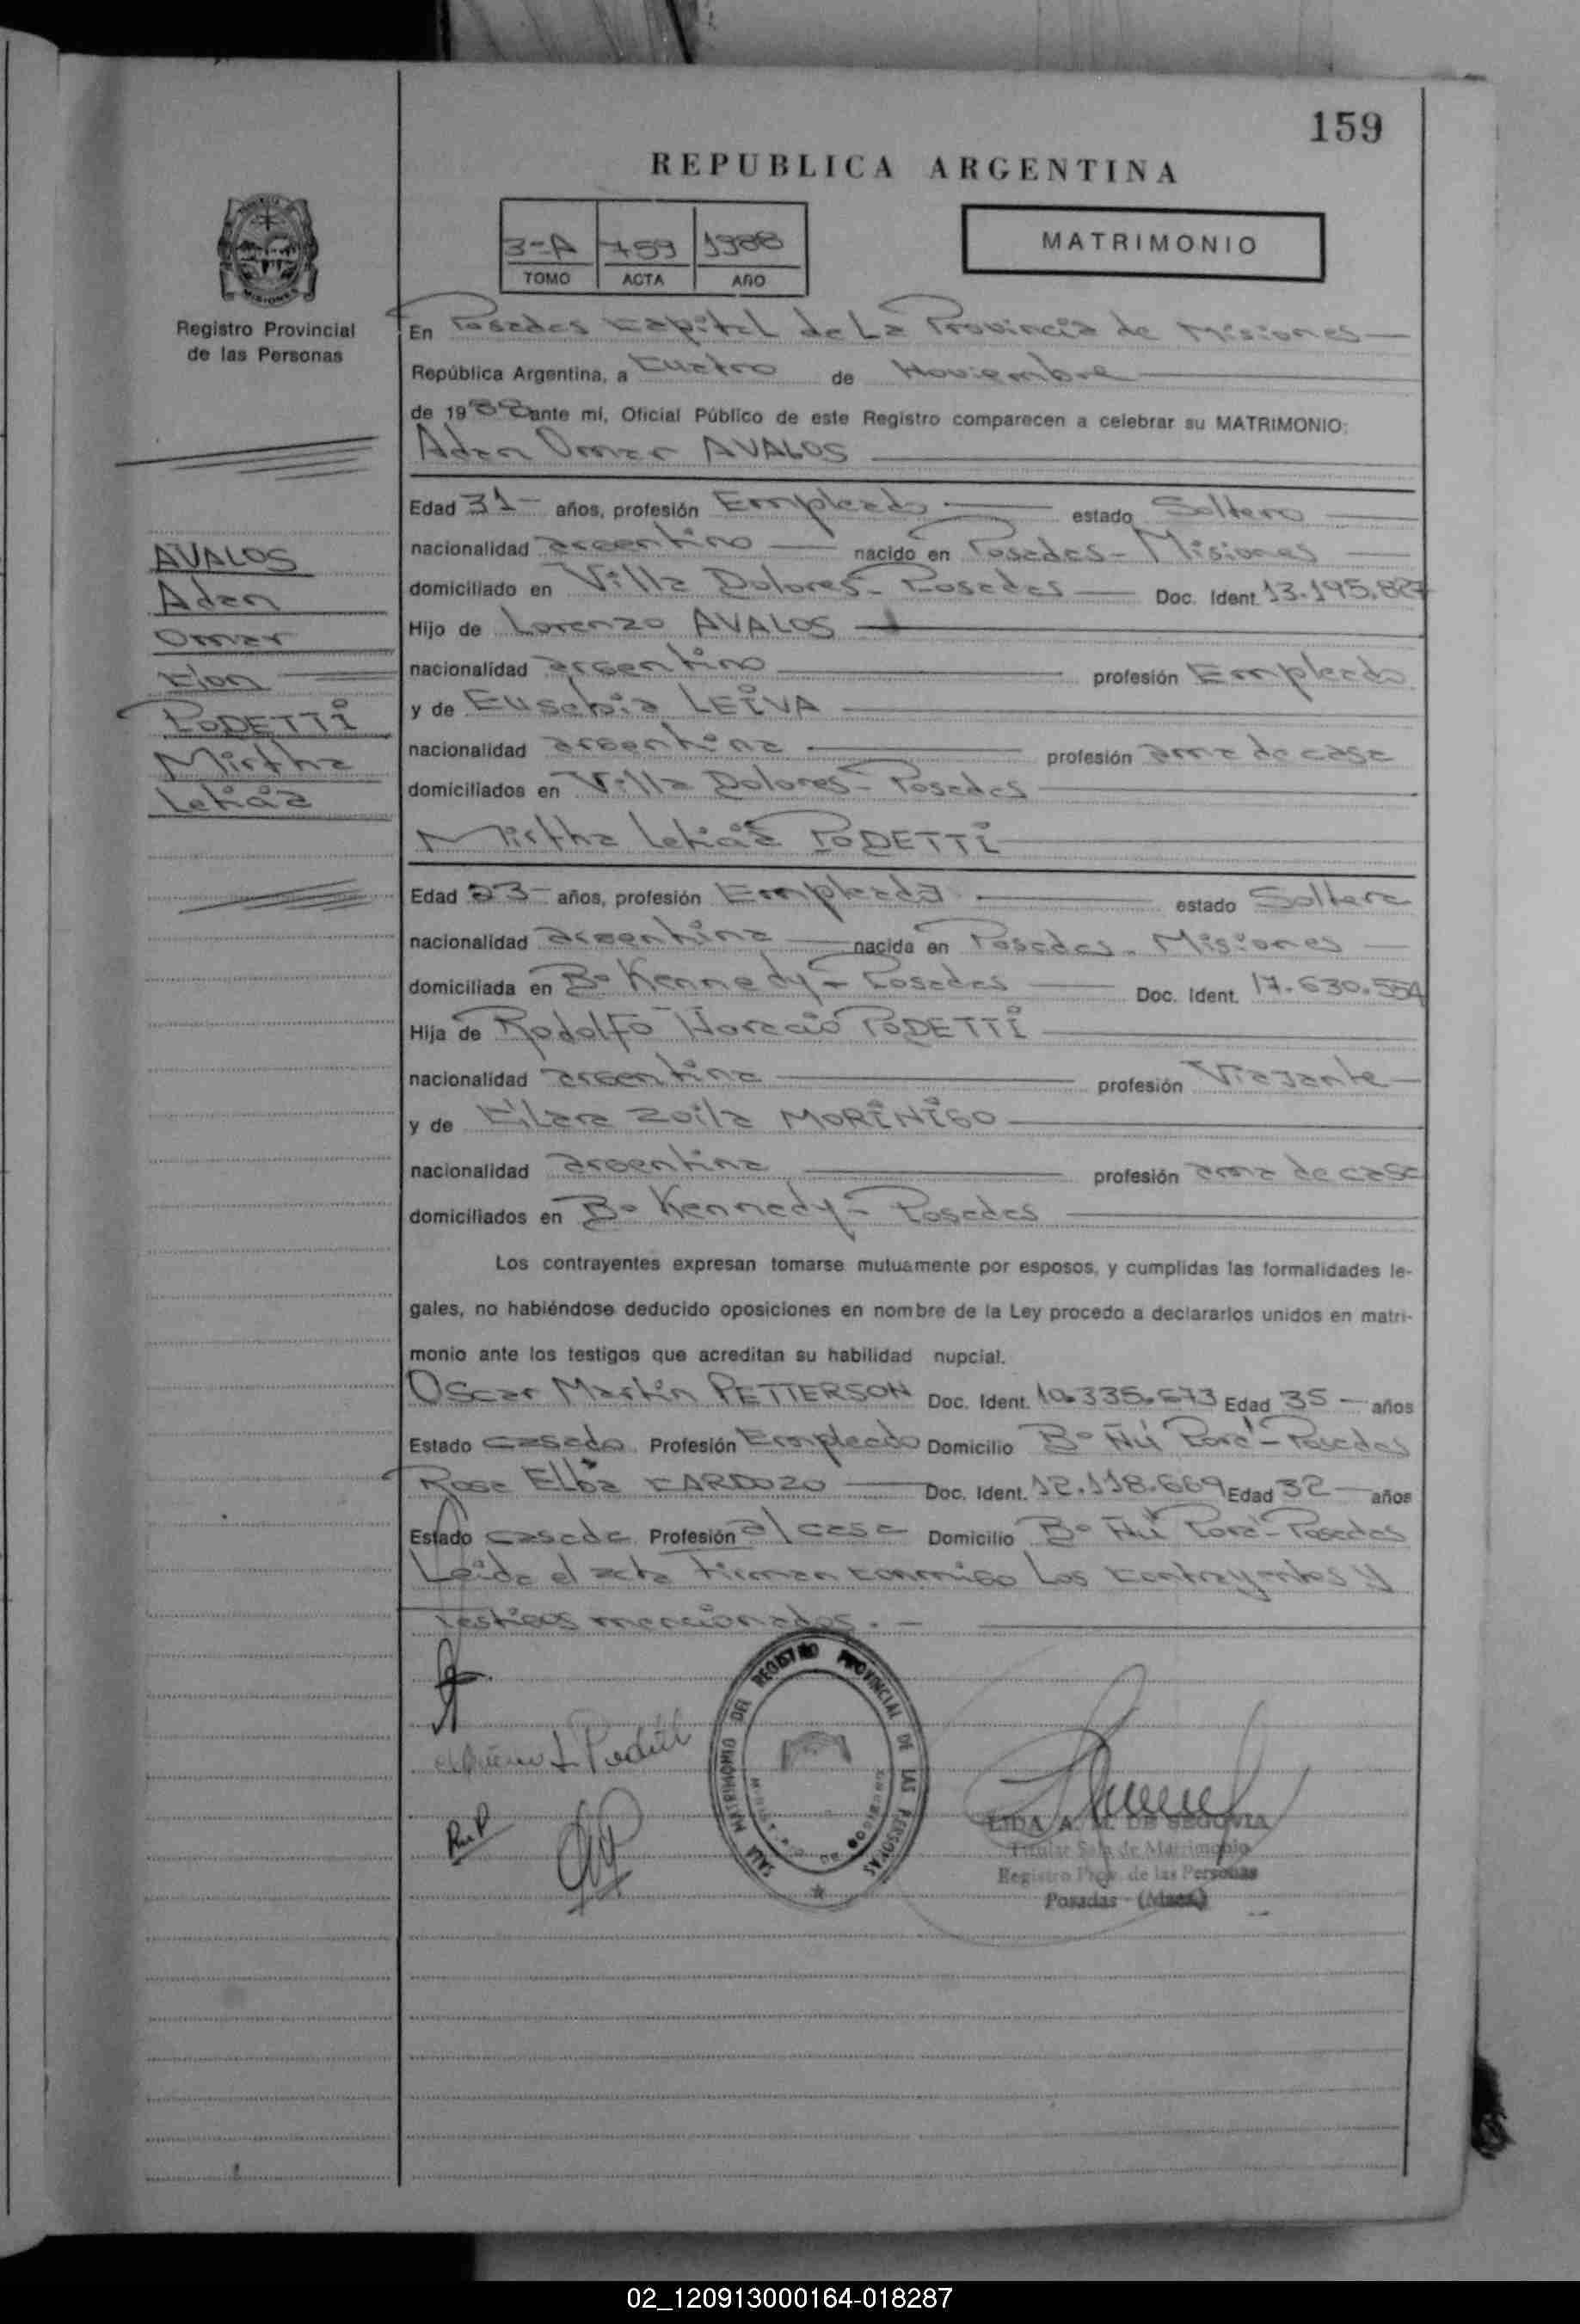 159
REPUBLICA ARGENTINA
3-A 759 1988
TOMO ACTA AÑO
MATRIMONIO
MISIONES
Registro Provincial
de las Personas
En Posadas Capital de La Provincia de Misiones
República Argentina, a Cuatro de Noviembre
de 1988 ante mí, Oficial Público de este Registro comparecen a celebrar su MATRIMONIO:
Adan Omar AVALOS
Edad 31 años, profesión Empleado estado Soltero
nacionalidad argentino nacido en Posadas - Misiones
domiciliado en Villa Dolores - Posadas Doc. Ident. 13.195.827
Hijo de Lorenzo AVALOS
nacionalidad argentino profesión Empleado
y de Eusebia LEIVA
nacionalidad argentina profesión ama de casa
domiciliados en Villa Dolores - Posadas
AVALOS
Adan
Omar
Con
PODETTI
Mirtha
Leticia
Mirtha Leticia PODETTI
Edad 23 años, profesión Empleada estado Soltera
nacionalidad argentina nacida en Posadas - Misiones
domiciliada en Bº Kennedy - Posadas Doc. Ident. 17.630.554
Hija de Rodolfo Horacio PODETTI
nacionalidad argentina profesión Viajante
y de Clara Zoila MORINIGO
nacionalidad argentina profesión ama de casa
domiciliados en Bº Kennedy - Posadas
Los contrayentes expresan tomarse mutuamente por esposos, y cumplidas las formalidades le-
gales, no habiéndose deducido oposiciones en nombre de la Ley procedo a declararlos unidos en matri-
monio ante los testigos que acreditan su habilidad nupcial.
Oscar Martin PETTERSON Doc. Ident. 10.335.673 Edad 35 - años
Estado casado Profesión Empleado Domicilio Bº Ñú Porá - Posadas
Rosa Elba CARDOZO Doc. Ident. 12.118.669 Edad 32 años
Estado casada Profesión a/ casa Domicilio Bº Ñú Porá - Posadas
Leida el acta firman conmigo Los contrayentes y
testigos mencionados. -
SALA MATRIMONIO DEL REGISTRO PROVINCIAL DE LAS PERSONAS
LIDA A. M. DE SEGOVIA
Titular Sala de Matrimonio
Registro Prov. de las Personas
Posadas - (Mnes.)
02_120913000164-018287